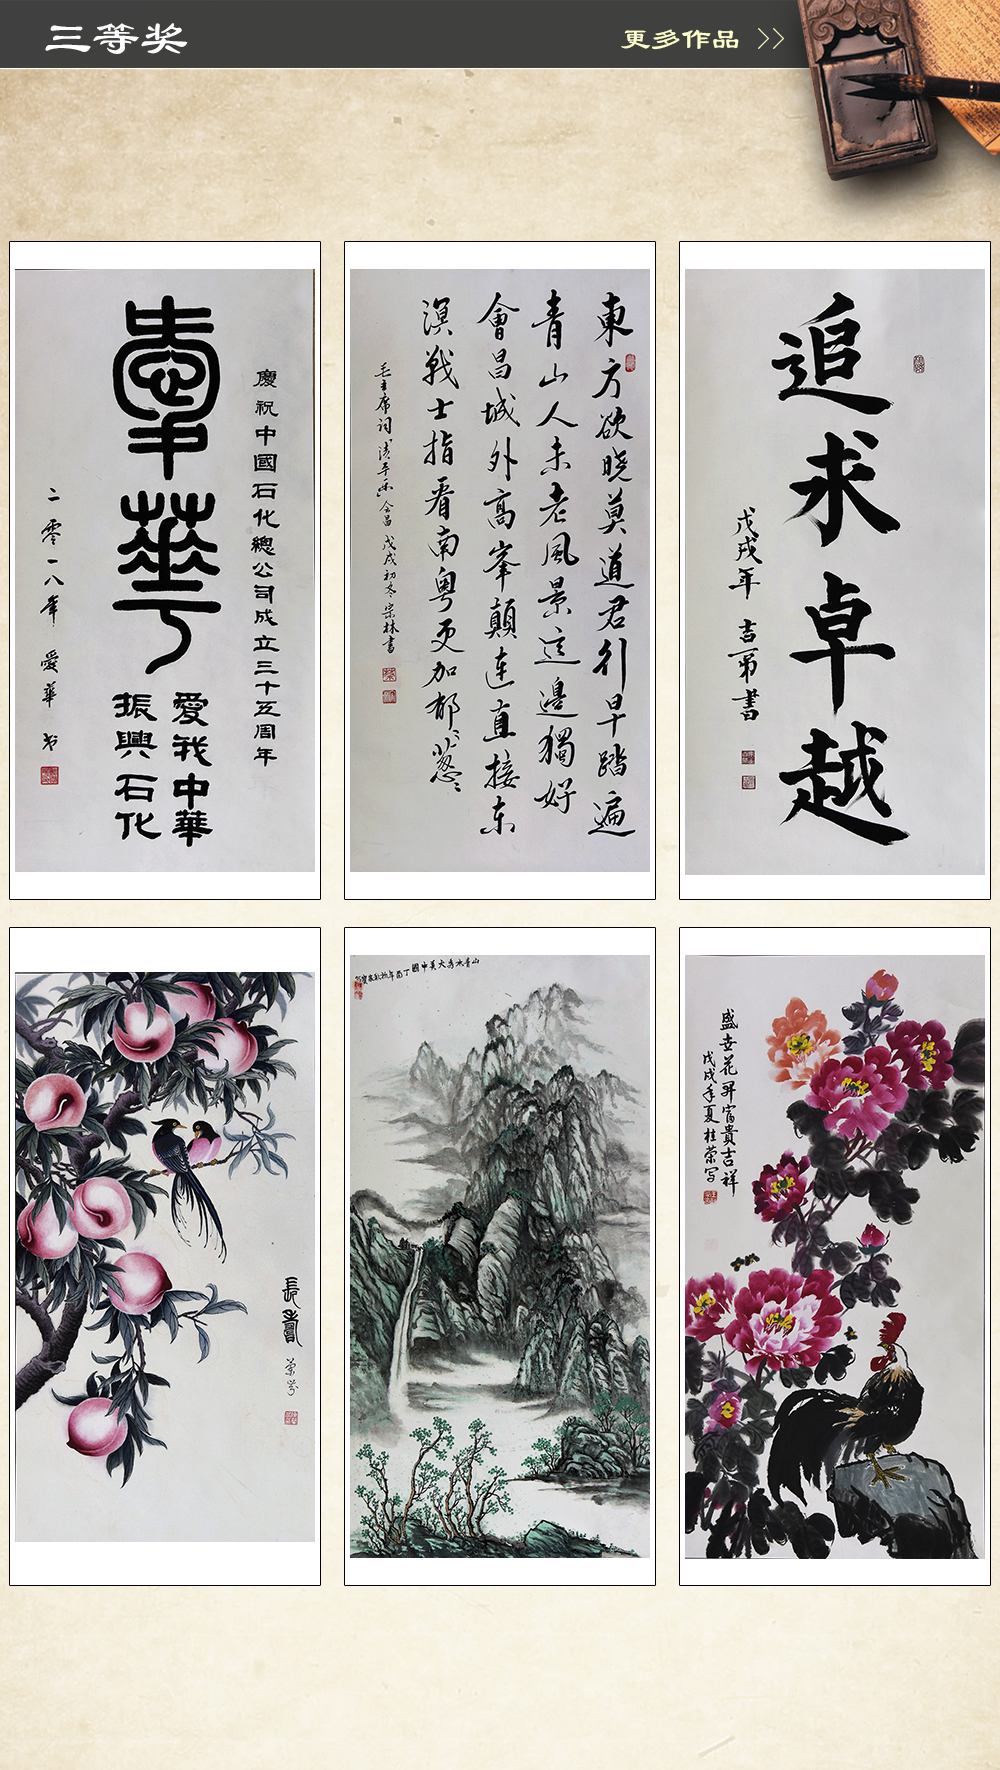 三等奖
更多作品 >>
慶祝中國石化總公司成立三十五周年
華
愛我中華
振興石化
二零一八年 愛華书
東方欲晓莫道君行早踏遍
青山人未老風景這邊獨好
會昌城外高峯顛連直接东
溟战士指看南粤更加郁〻葱〻
毛主席词清平乐会昌 戊戌初冬宗林書
追求卓越
戊戌年 吉弟書
長壽
山青水秀大美中國丁酉年
盛世花開富貴吉祥
戊戌年夏桂荣写